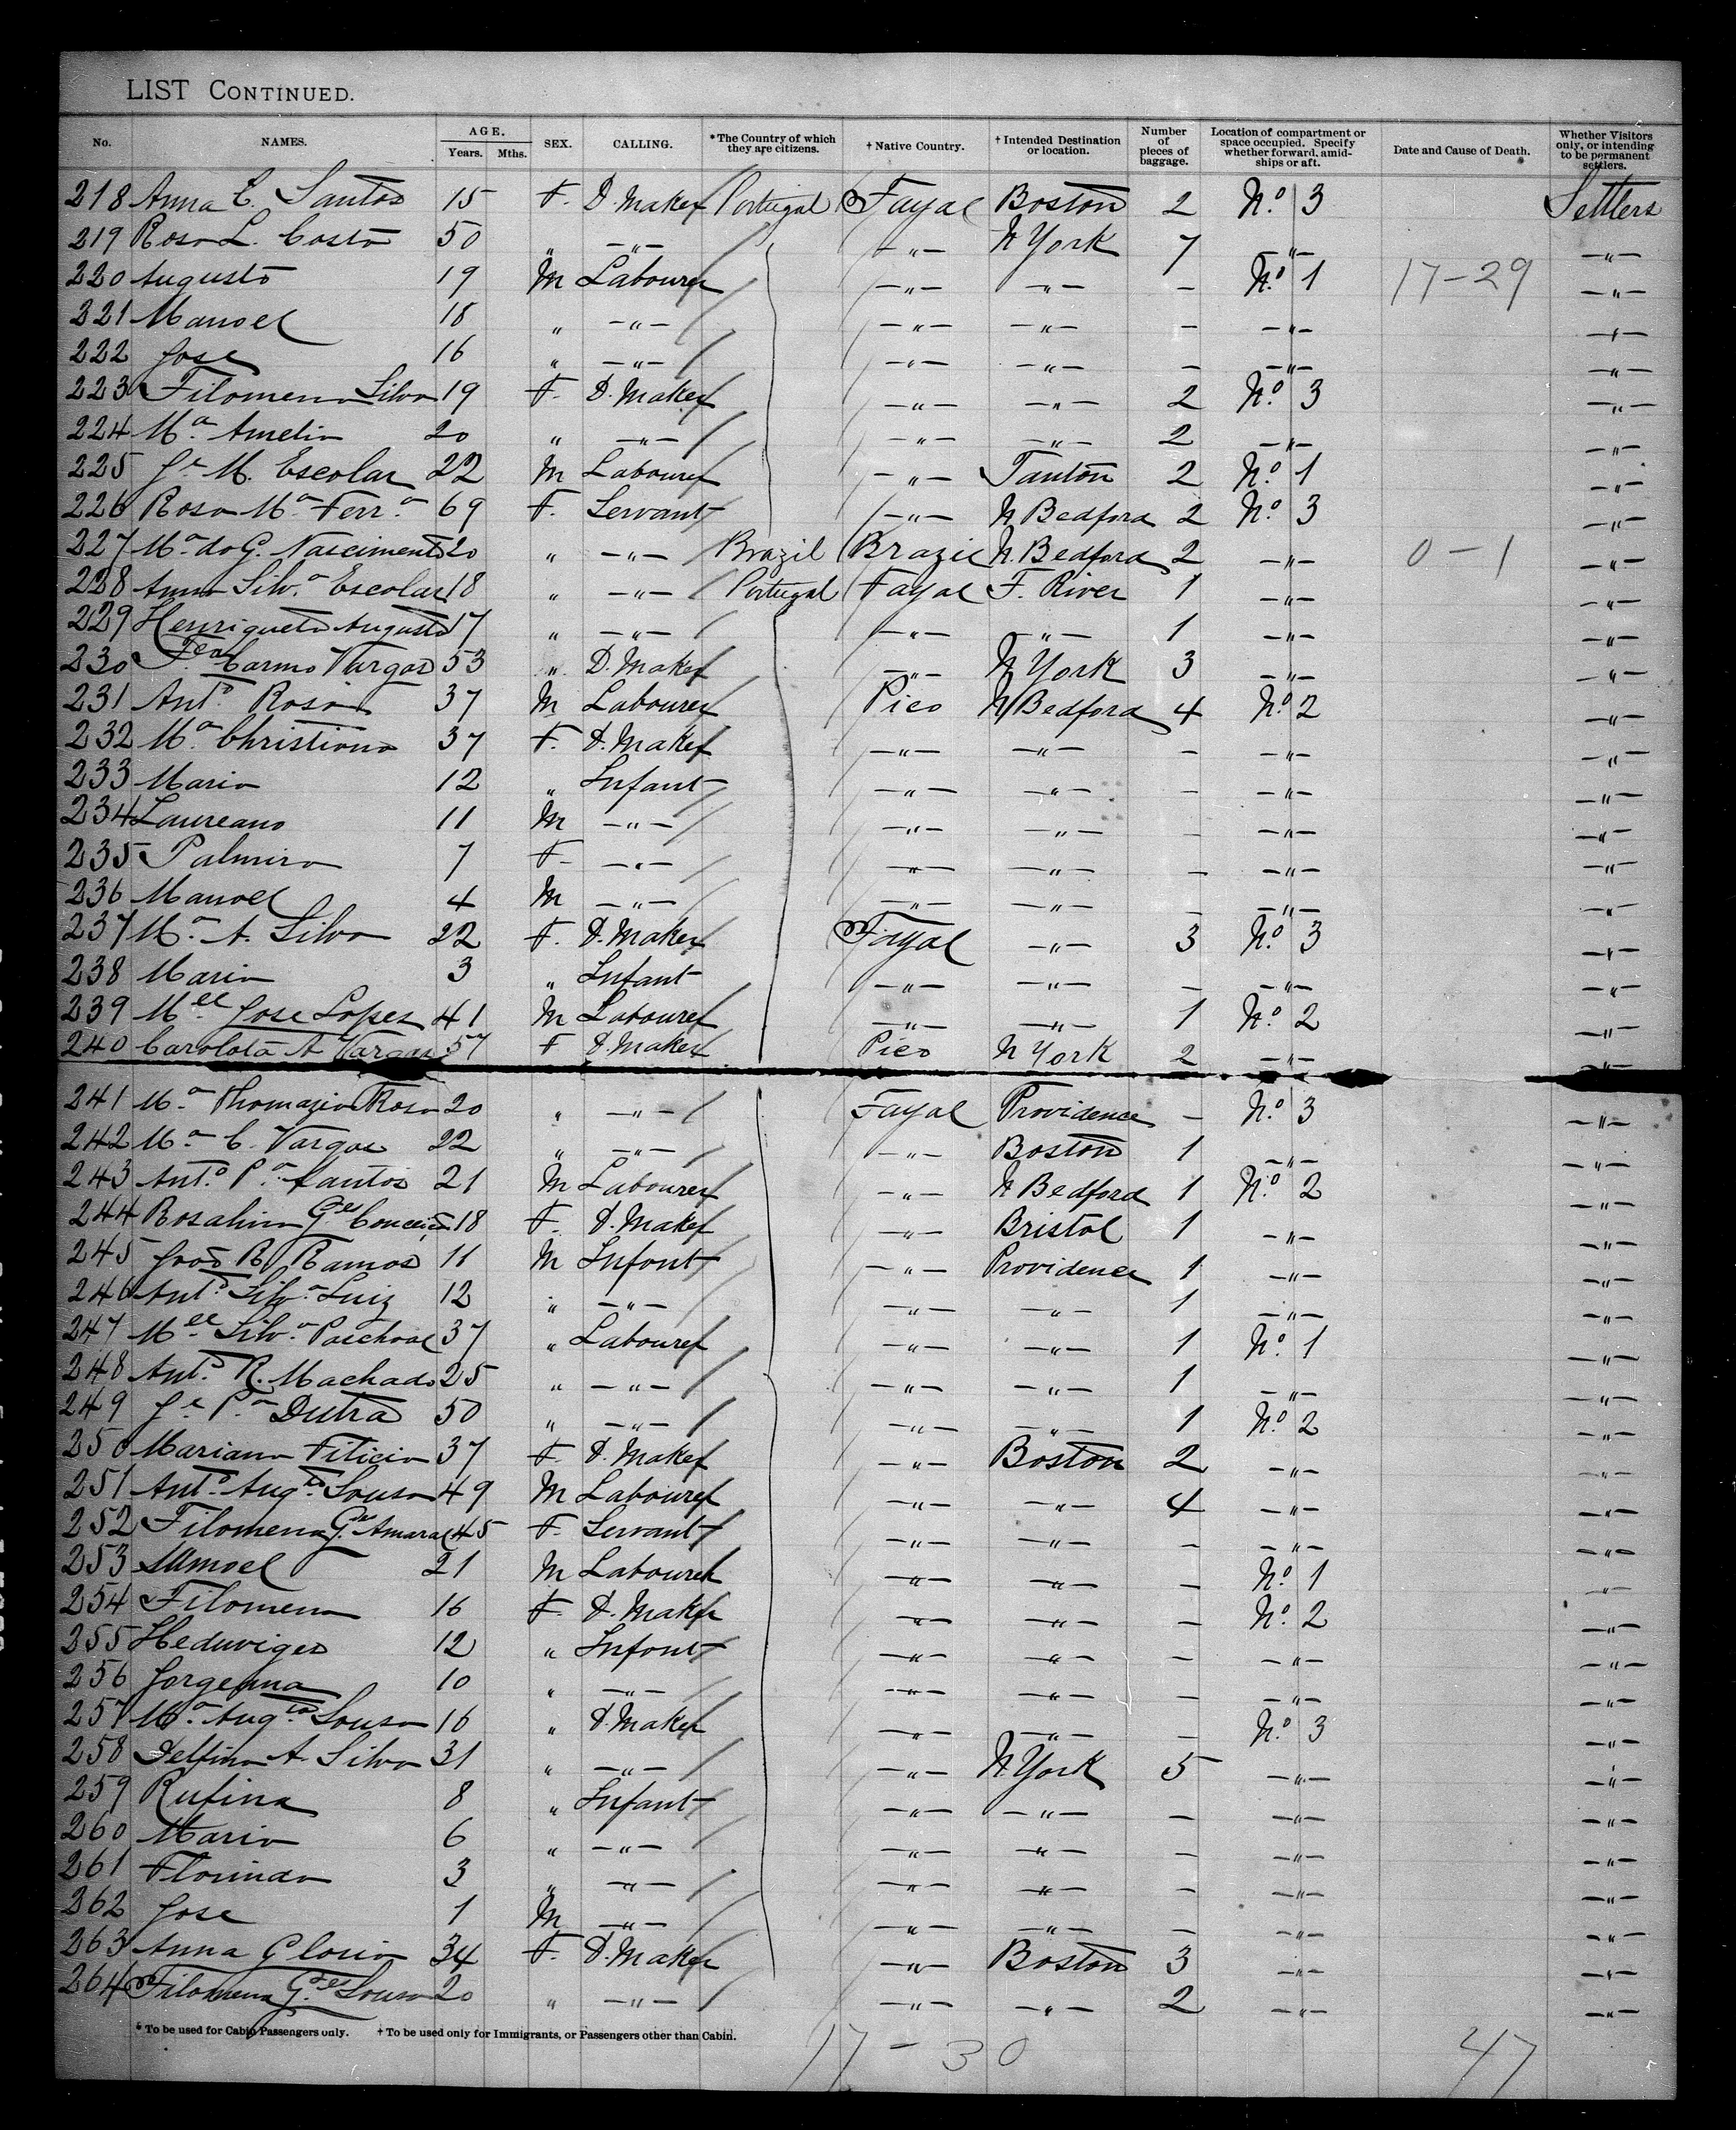 LIST CONTINUED.
No. NAMES. AGE. Years. Mths. SEX. CALLING. *The Country of which they are citizens. † Native Country. † Intended Destination or location. Number of pieces of baggage. Location of compartment or space occupied. Specify whether forward, amidships or aft. Date and Cause of Death. Whether Visitors only, or intending to be permanent settlers.
218 Anna E. Santos 15 F. D. Maker Portugal Fayal Boston 2 No. 3 Settlers
219 Rosa L. Costa 50 " -"- -"- N York 7 -"- -"-
220 Augusto 19 M Labourer -"- -"- - No. 1 17-29 -"-
221 Manoel 18 " -"- -"- -"- - -"- -"-
222 Jose 16 " -"- -"- -"- - -"- -"-
223 Filomena Silva 19 F. D. Maker -"- -"- 2 No. 3 -"-
224 Ma. Amelia 20 " -"- -"- -"- 2 -"- -"-
225 Je M. Escolar 22 M Labourer -"- Tanton 2 No. 1 -"-
226 Rosa Ma. Ferra. 69 F. Servant -"- N. Bedford 2 No. 3 -"-
227 Ma. do G. Nascimento 20 " -"- Brazil Brazil N. Bedford 2 -"- 0-1 -"-
228 Anna Silva. Escolar 18 " -"- Portugal Fayal F. River 1 -"- -"-
229 Henriqueta Augusta 17 " -"- -"- -"- 1 -"- -"-
230 Carmo Vargas 53 " D. Maker -"- N York 3 -"- -"-
231 Anto. Rosa 37 M Labourer Pico N Bedford 4 No. 2 -"-
232 Ma. Christiana 37 F. D. Maker -"- -"- - -"- -"-
233 Maria 12 " Infant -"- -"- - -"- -"-
234 Laureano 11 M -"- -"- -"- - -"- -"-
235 Palmira 7 F -"- -"- -"- - -"- -"-
236 Manoel 4 M -"- -"- -"- - -"- -"-
237 Ma. A. Silva 22 F. D. Maker Fayal -"- 3 No. 3 -"-
238 Maria 3 " Infant -"- -"- - -"- -"-
239 Mel Jose Lopes 41 M Labourer -"- -"- 1 No. 2 -"-
240 Carolota A Vargas 57 F D. Maker Pico N York 2 -"- -"-
241 Ma. Thomazia Rosa 20 " -"- Fayal Providence - No. 3 -"-
242 Ma. C. Vargas 22 " -"- -"- Boston 1 -"- -"-
243 Anto. Pa. Santos 21 M Labourer -"- N Bedford 1 No. 2 -"-
244 Rosalina Ges 18 F. D. Maker -"- Bristol 1 -"- -"-
245 Joao R. Ramos 11 M Infant -"- Providence 1 -"- -"-
246 Anto. Silva. Luiz 12 " -"- -"- -"- 1 -"- -"-
247 Mel Silva. Paschoal 37 " Labourer -"- -"- 1 No. 1 -"-
248 Anto. R. Machado 25 " -"- -"- -"- 1 -"- -"-
249 Je Pa. Dutra 50 " -"- -"- -"- 1 No. 2 -"-
250 Mariana Filicia 37 F. D. Maker -"- Boston 2 -"- -"-
251 Anto. Augto. Sousa 49 M Labourer -"- -"- 4 -"- -"-
252 Filomena Ges. Amaral 45 F. Servant -"- -"- - -"- -"-
253 Manoel 21 M Labourer -"- -"- - No. 1 -"-
254 Filomena 16 F. D. Maker -"- -"- - No. 2 -"-
255 Heduviges 12 " Infant -"- -"- - -"- -"-
256 Jorgenna 10 " -"- -"- -"- - -"- -"-
257 Ma. Augta. Sousa 16 " D. Maker -"- -"- - No. 3 -"-
258 Delfina A. Silva 31 " -"- -"- N. York 5 -"- -"-
259 Rufina 8 " Infant -"- -"- - -"- -"-
260 Maria 6 " -"- -"- -"- - -"- -"-
261 Florinda 3 " -"- -"- -"- - -"- -"-
262 Jose 1 M -"- -"- -"- - -"- -"-
263 Anna Gloria 34 F. D. Maker -"- Boston 3 -"- -"-
264 Filomena Ges. Sousa 20 " -"- -"- -"- 2 -"- -"-
* To be used for Cabin Passengers only. † To be used only for Immigrants, or Passengers other than Cabin.
17 - 30 47